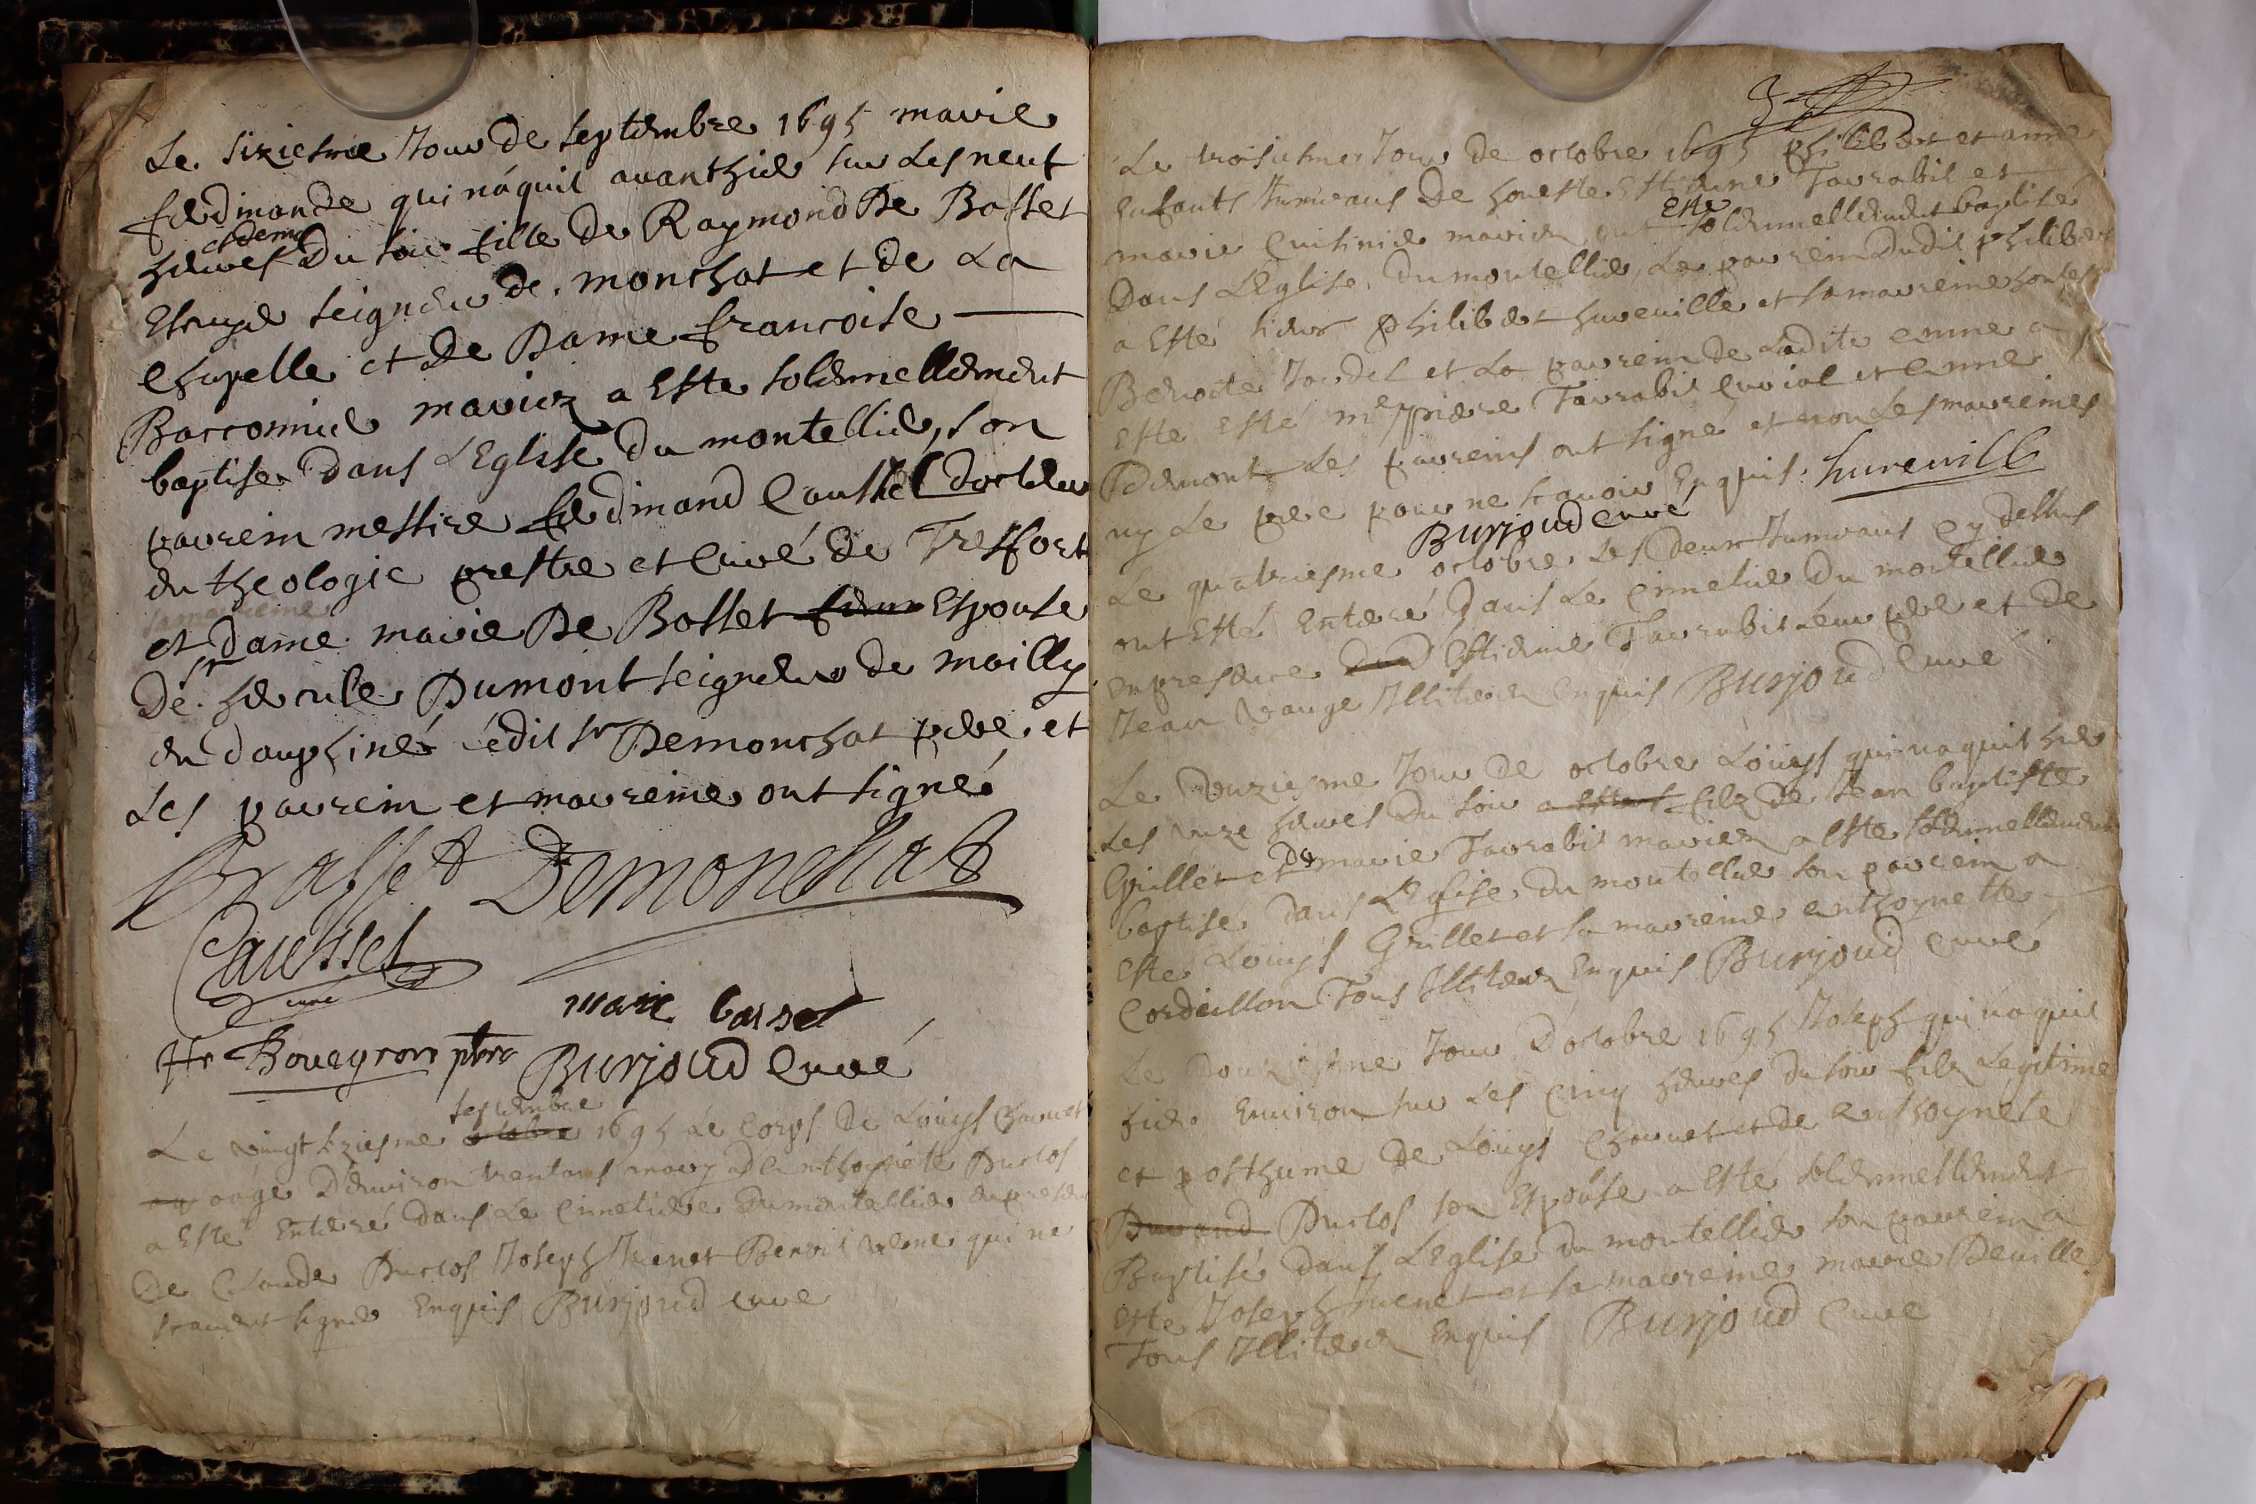 Le. siziesme Jour de septembre 1695 marie
ferdinande qui náquit avanthier sur Les neuf
et demy
heures Du soir fille de Raymond De Basset
Escuyer seigneur de. monchat et de La
Chapelle et de Dame francoise
Baronnier mariez a este solennellement
baptisee Dans L'Eglise du montellier, son
parrein messire ferdinand Causset Docteur
en theologie prestre et Curé de Treffort
sa marreine
et Dame marie De Basset Espouse
De sr hercule Dumont seigneur de mailly
en dauphiné ledit sr Demonchat pere et
Les parrein et marreine ont signé
Basset Demonchat
Causset
Curé
marie basset
Bouegron ptre Burjoud Curé
septembre
Le vingt siziesme octobre 1695 Le Corps De Louys Charnet
aagé D'environ trentans mary d'Anthoynete Duclos
a Esté Enterré Dans Le Cimetiere Dumontellier en presence
De Claude Duclos Joseph Juenet Benoit qui ne
scavent signer Enquis Burjoud curé
3
Le troisiesme Jour de octobre 1695 philibert et anne
Enfants Jumeaus De honeste Estienne Tavrabit et
Esté
marie Cuisinier mariez ont solennellement baptisé
Dans L'Eglise Du montellier, Le parrein Dudit philibert
a Esté sieur philibert hureville et sa marreine honeste
Benoite Jordel et La parrein de Ladite anne a
Este Esté mre pierre Tavrabit Curial et Anne
Demont Les parreins ont signé et non Les marreines
ny Le pere pour ne scavoir Enquis. hureville
Burjoud Curé
Le quatriesme octobre Les Deux Jumeaus Cy dessus
ont Esté Enterré Dans Le Cimetier Du montellier
en presence Estienne Tavrabit Leur pere et de
Jean vauge Illiterez Enquis Burjoud Curé
Le onziesme Jour de octobre Louys qui naquit hier
Les onze heures Du soir filz De Jean baptiste
Grillet et De marie Tavrabit mariez a Este solennellement
baptisé dans L'Eglise du montellier son parrein a
Esté Louys Grillet et sa marreine anthoynette
Cordeillon Tous Illiterez Enquis Burjoud Curé
Le Douziesme Jour D'octobre 1695 Joseph qui náquit
hier Environ sur Les Cinq heures du soir filz Legitime
et posthume De Louys Charnet et de anthoynete
Durand Duclos son Espouse a Esté solennellement
Baptisé Dans L'eglise du montellier son parrein a
este Joseph Juenet et sa marreine marie Deville
Tous Illiterez Enquis Burjoud Curé